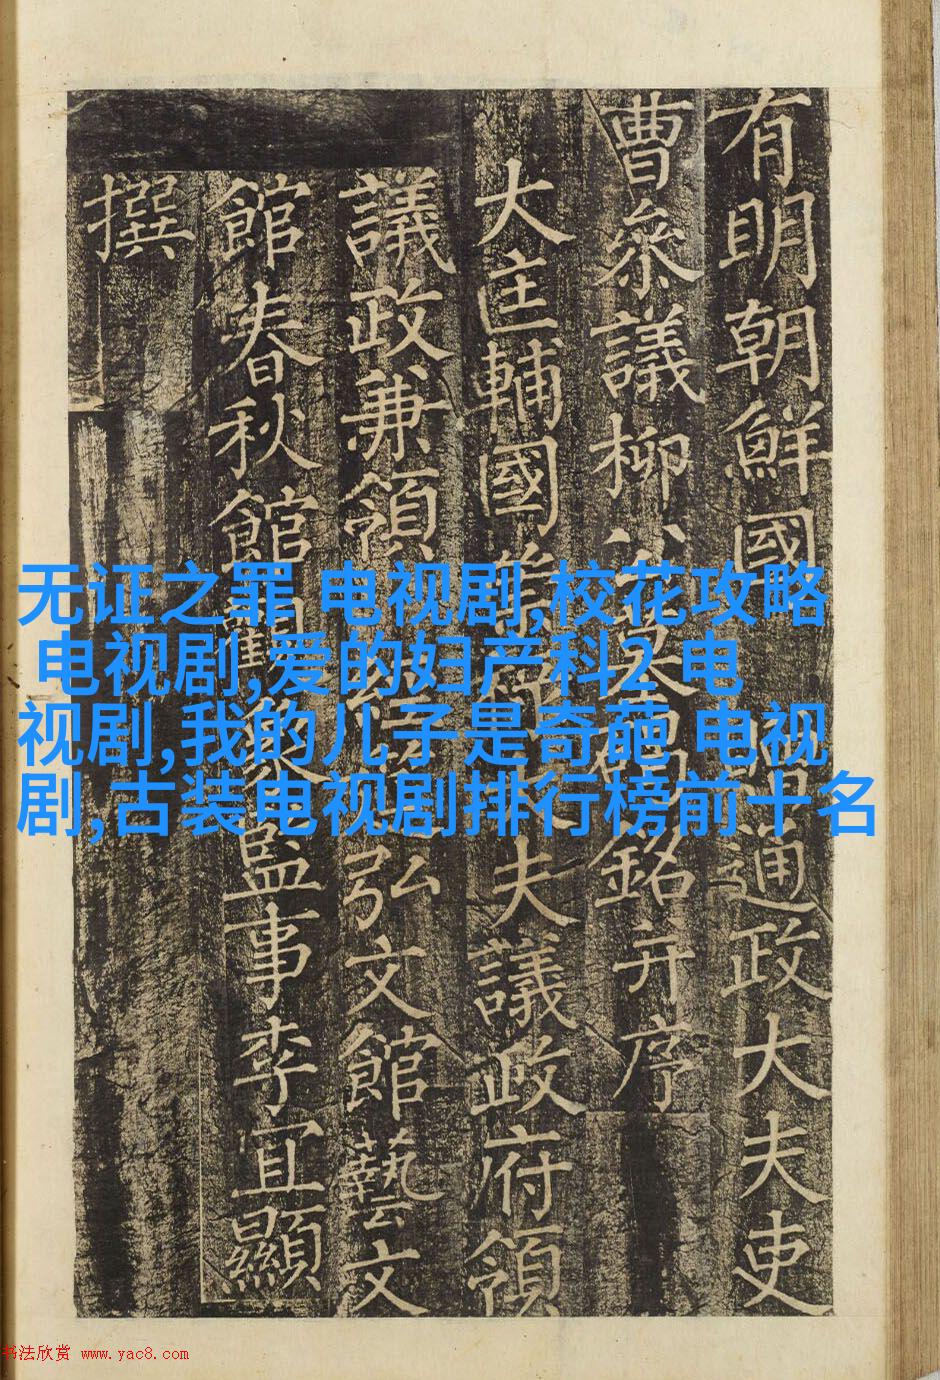 有明朝鮮國通政大夫吏
曹叅議柳公墓碣銘并序
大匡輔國崇大夫議政府領
議政兼領弘文館藝文
館春秋館觀象監事李宜顯
撰
无证之罪 电视剧,校花攻略
电视剧,爱的妇产科2 电
视剧,我的儿子是奇葩 电视
剧,古装电视剧排行榜前十名
书法欣赏 www.yac8.com